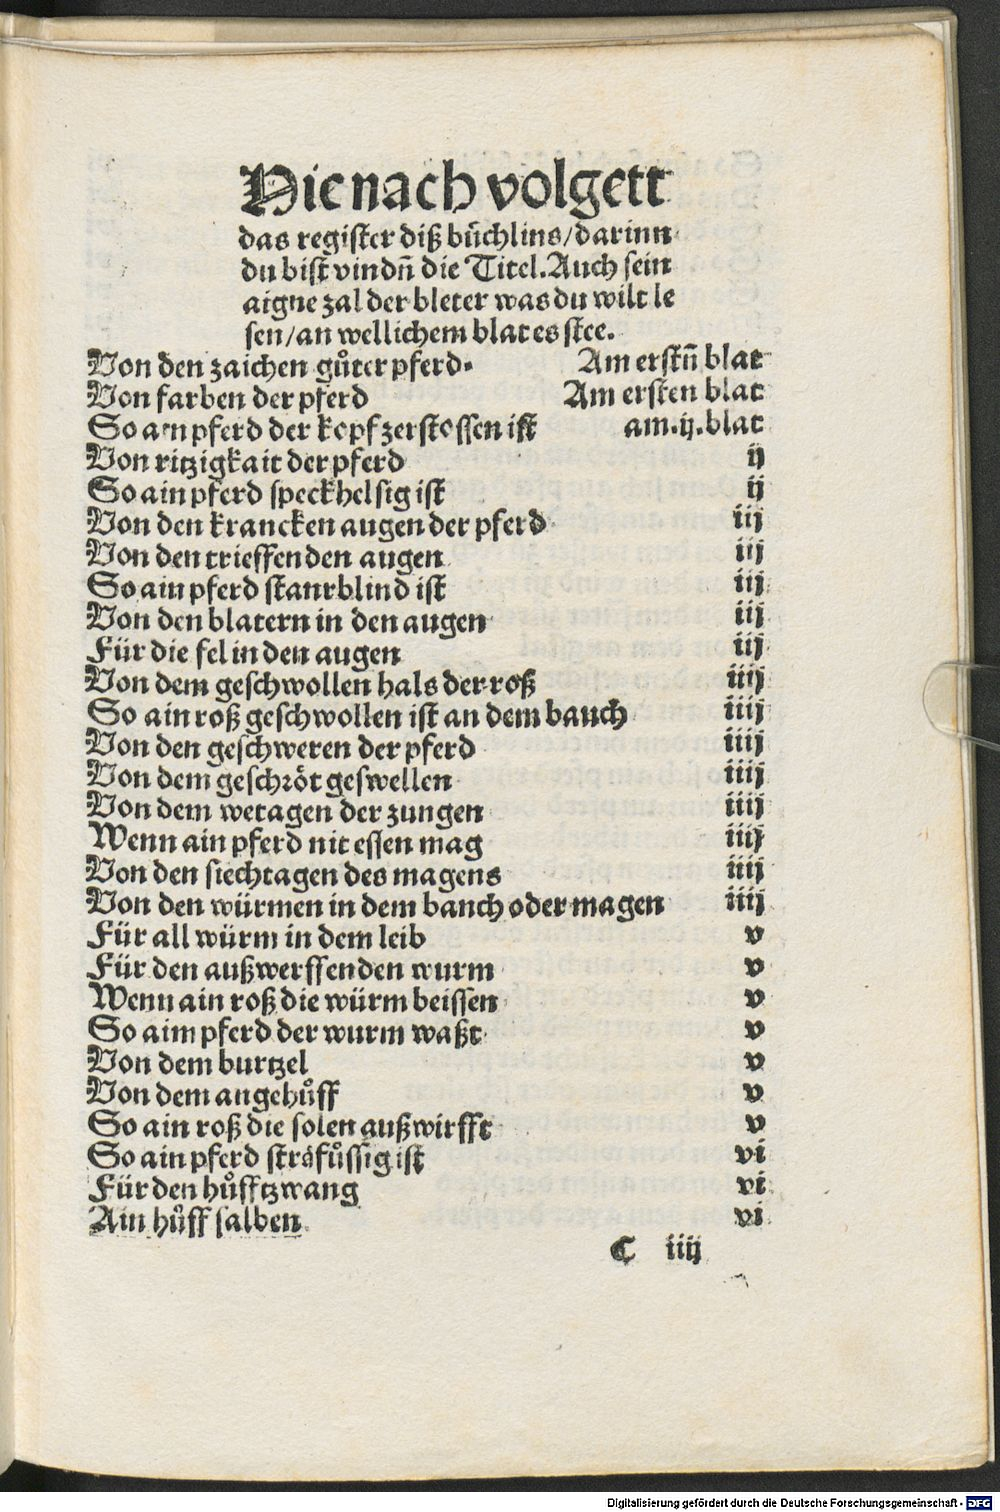 Hie nach volgett
das regiſter diß bu̅chlins/darinn
du biſt vindn̅ die Titel. Auch ſein
aigne zal der bleter was du wilt le
ſen/an wellichem blat es ſtee.
Von den zaichen gůter pferd. Am erſtn̅ blat
Von farben der pferd Am erſten blat
So ain pferd der kopf zerſtoſſen iſt am.ij.blat
Von ritzigkait der pferd ij
So ain pferd ſpeckhelſig iſt ij
Von den krancken augen der pferd iij
Von den trieffenden augen iij
So ain pferd ſtanrblind iſt iij
Von den blatern in den augen iij
Für die fel in den augen iij
Von dem geſchwollen hals der roß iiij
So ain roß geſchwollen iſt an dem bauch iiij
Von den geſchweren der pferd iiij
Von dem geſchröt geswellen iiij
Von dem wetagen der zungen iiij
Wenn ain pferd nit eſſen mag iiij
Von den ſiechtagen des magens iiij
Von den würmen in dem banch oder magen iiij
Für all würm in dem leib v
Für den außwerffenden wurm v
Wenn ain roß die würm beiſſen v
So aim pferd der wurm waßt v
Von dem burtzel v
Von dem angehůff v
So ain roß die ſolen außwirfft v
So ain pferd ſträfůſſig iſt vi
Für den hůfftzwang vi
Ain hůff ſalben vi
C iiij
Digitalisierung gefördert durch die Deutsche Forschungsgemeinschaft - DFG